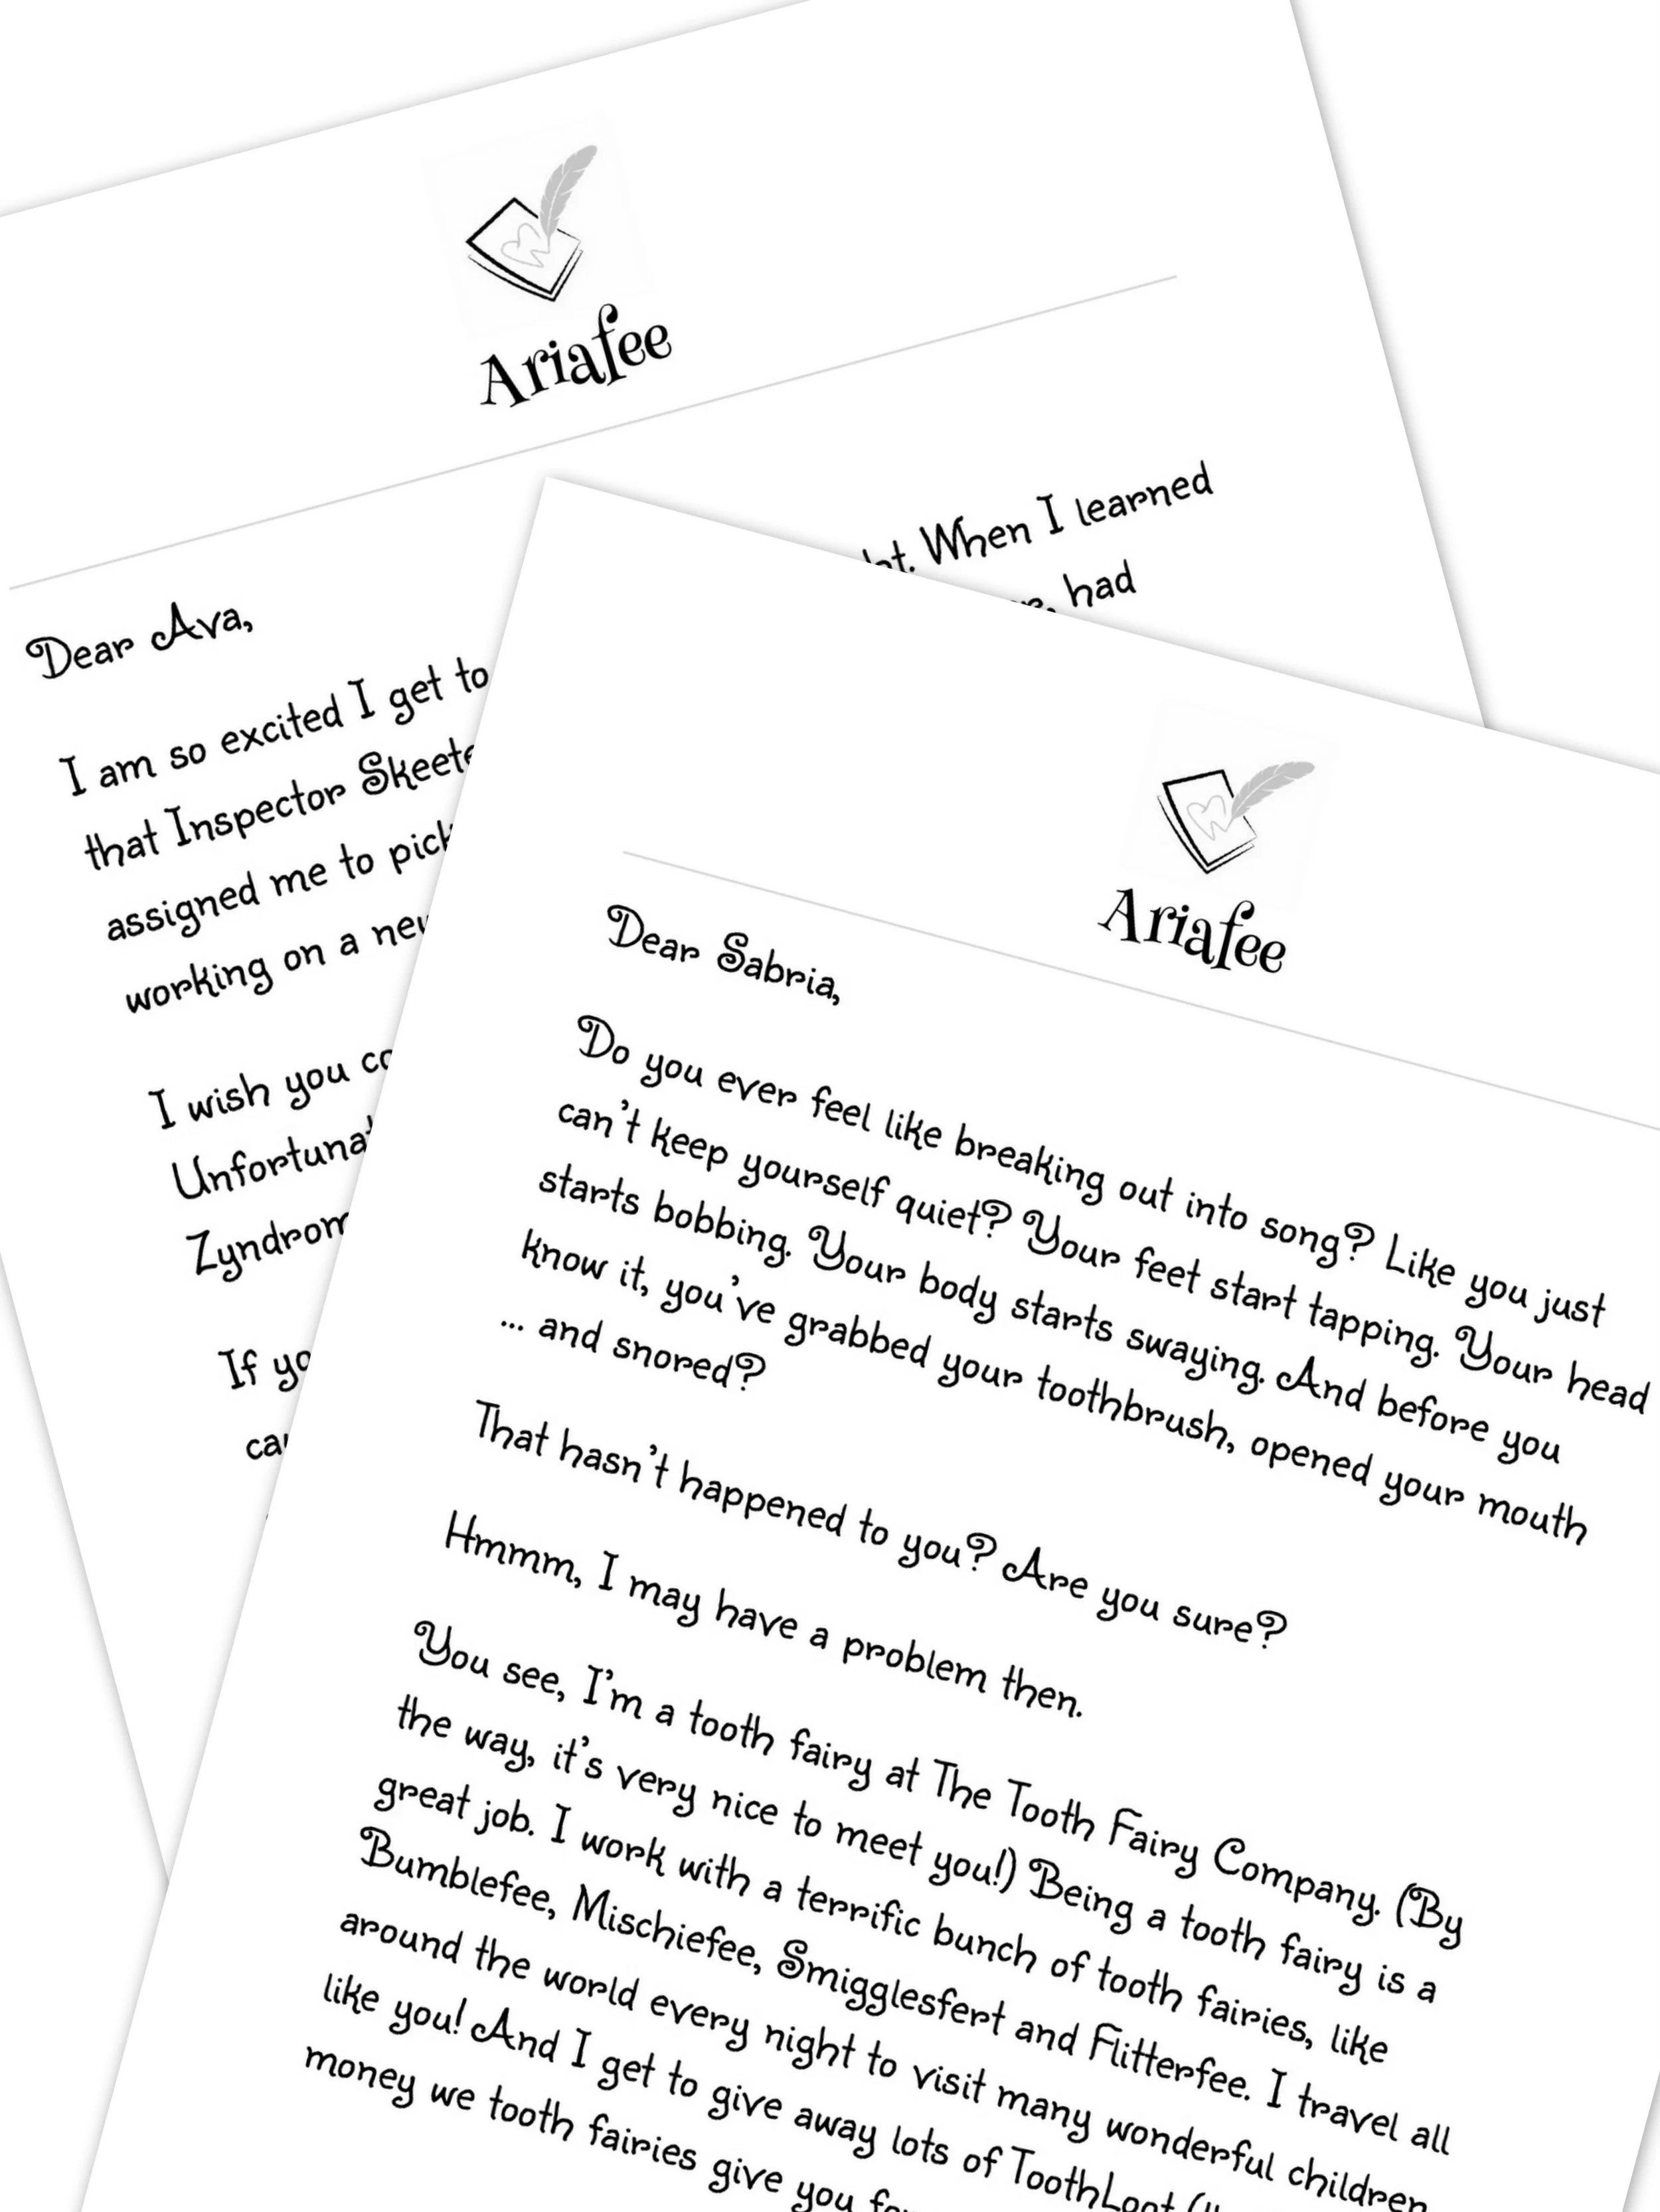 Ariafee
Dear Ava,
I am so excited I get to
When I learned
that Inspector
had
assigned me to
working on a
I wish you
If
Ariafee
Dear Sabria,
Do you ever feel like breaking out into song? Like you just
can't keep yourself quiet? Your feet start tapping. Your head
starts bobbing. Your body starts swaying. And before you
know it, you've grabbed your toothbrush, opened your mouth
... and snored?
That hasn't happened to you? Are you sure?
Hmmm, I may have a problem then.
You see, I'm a tooth fairy at The Tooth Fairy Company. (By
the way, it's very nice to meet you!) Being a tooth fairy is a
great job. I work with a terrific bunch of tooth fairies, like
Bumblefee, Mischiefee, Smigglesfert and Flitterfee. I travel all
around the world every night to visit many wonderful children
like you! And I get to give away lots of ToothLoot
money we tooth fairies give you